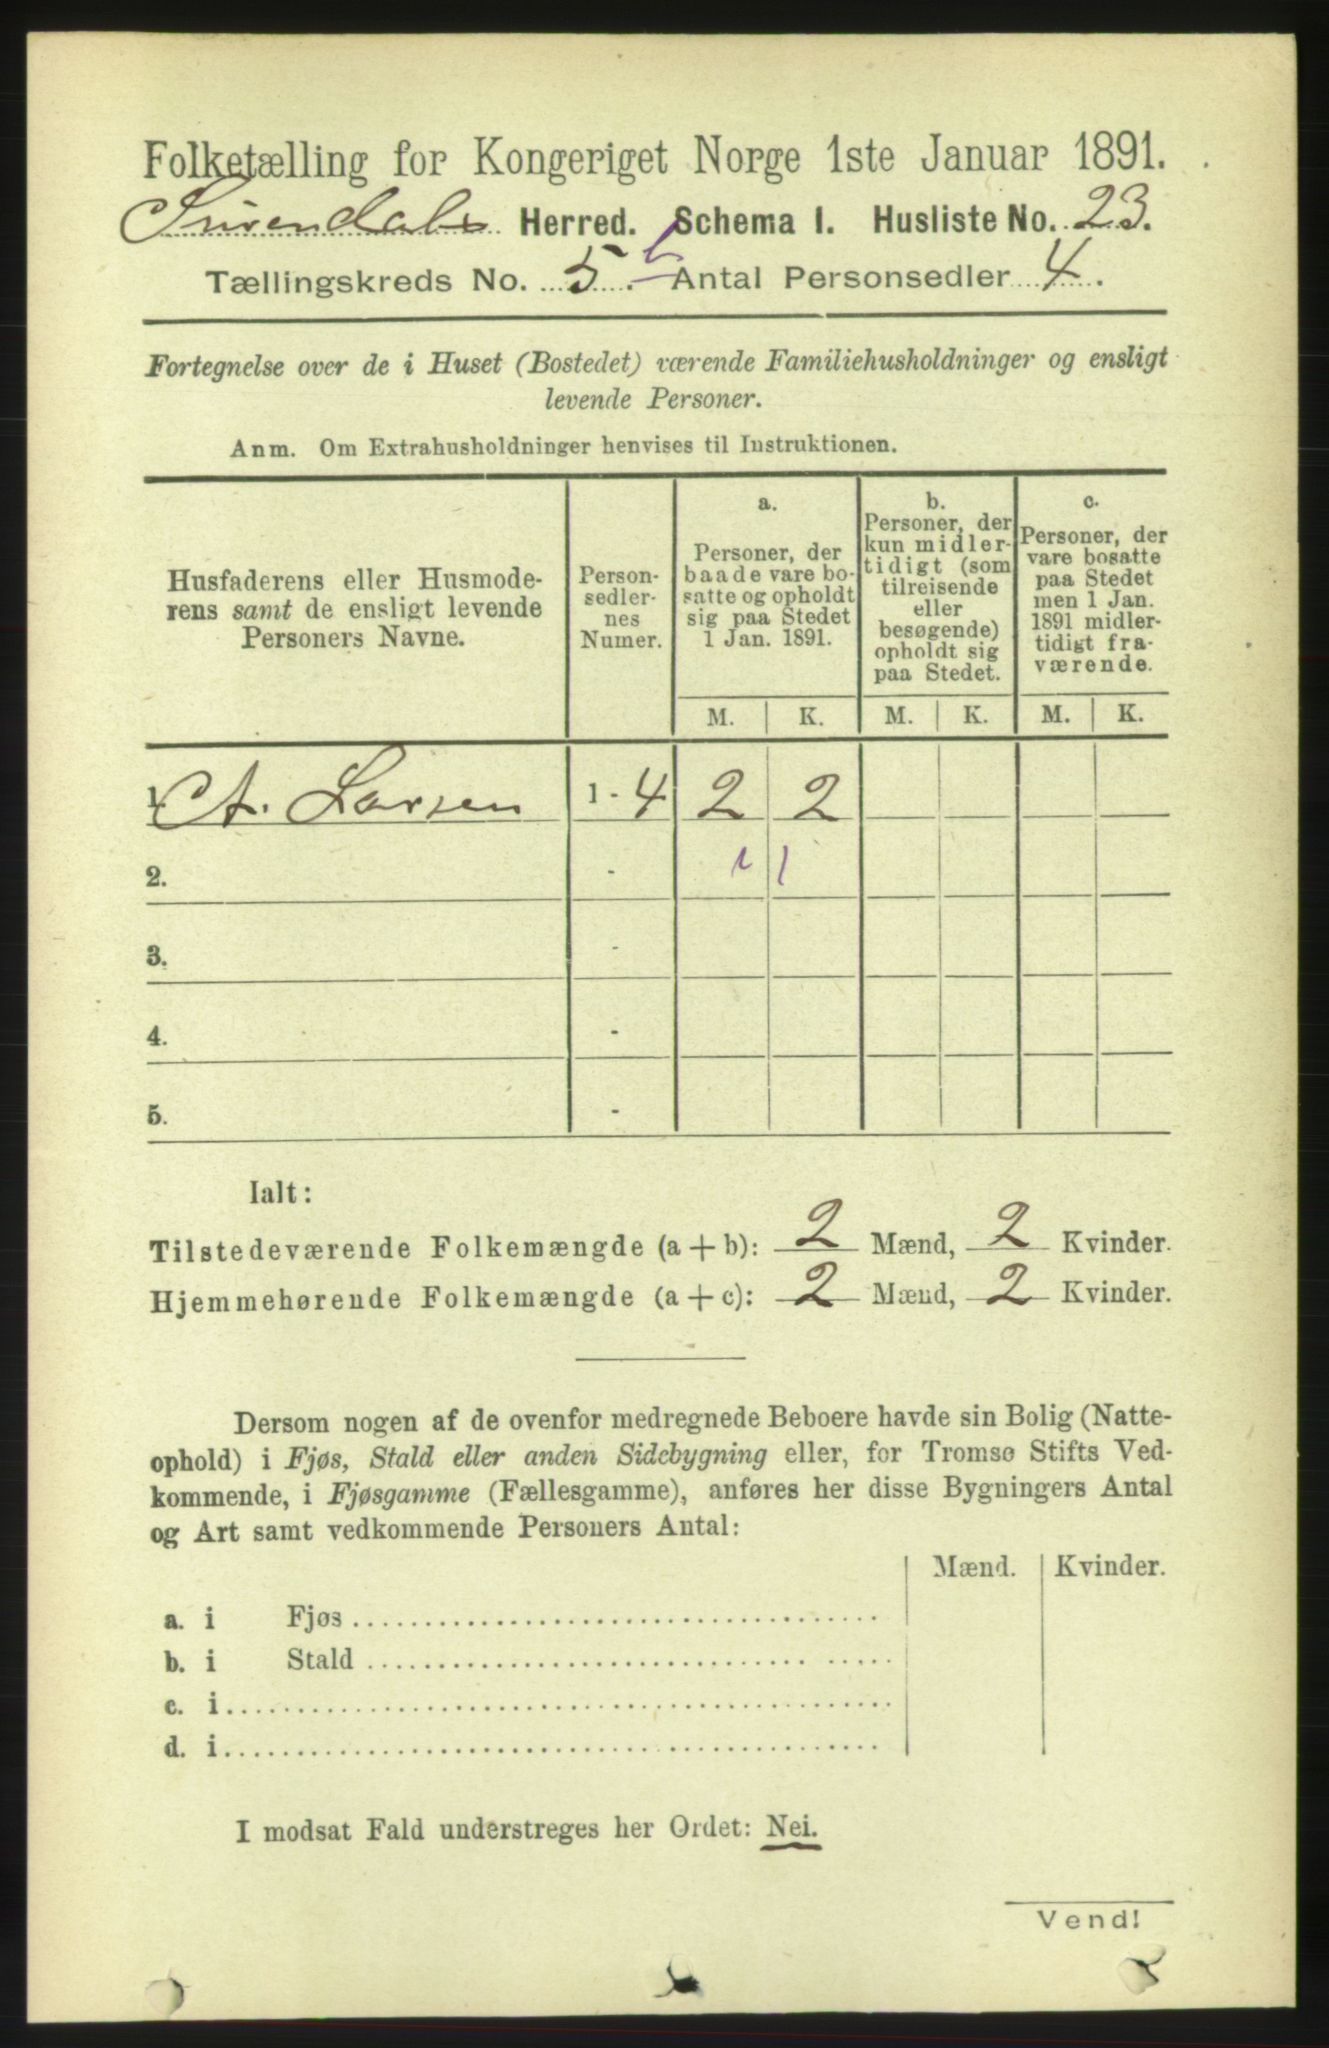 Folketælling for Kongeriget Norge 1ste Januar 1891.
Herred. Schema I. Husliste No. 23.
Tællingskreds No. 5. b Antal Personsedler 4.
Fortegnelse over de i Huset (Bostedet) værende Familiehusholdninger og ensligt
levende Personer.
Anm. Om Extrahusholdninger henvises til Instruktionen.
Husfaderens eller Husmode-
rens samt de ensligt levende
Personers Navne.
Person-
sedler-
nes
Numer.
a.
Personer, der
baade vare bo-
satte og opholdt
sig paa Stedet
1 Jan. 1891.
b.
Personer, der
kun midler-
tidigt (som
tilreisende
eller
besøgende)
opholdt sig
paa Stedet.
c.
Personer, der
vare bosatte
paa Stedet
men 1 Jan.
1891 midler-
tidigt fra-
værende.
M. K. M. K. M. K.
1 A. Larsen 1 - 4 2 2
2. - 1 1
3. -
4. -
5. -
Ialt:
Tilstedeværende Folkemængde (a + b): 2 Mænd, 2 Kvinder.
Hjemmehørende Folkemængde (a + c): 2 Mænd, 2 Kvinder.
Dersom nogen af de ovenfor medregnede Beboere havde sin Bolig (Natte-
ophold) i Fjøs, Stald eller anden Sidebygning eller, for Tromsø Stifts Ved-
kommende, i Fjøsgamme (Fællesgamme), anføres her disse Bygningers Antal
og Art samt vedkommende Personers Antal:
Mænd. Kvinder.
a. i Fjøs
b. i Stald
c. i
d. i
I modsat Fald understreges her Ordet: Nei.
Vend!